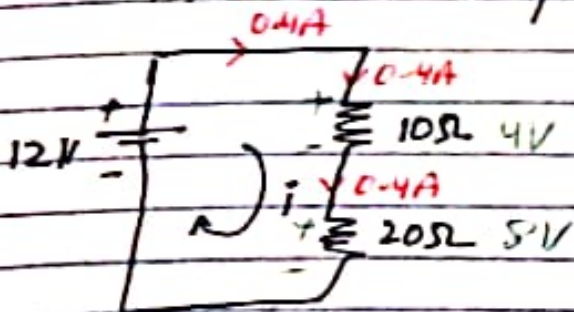 0.4A
+
0-4A
+
12V
10Ω 4V
-
-
i
0-4A
+
20Ω 5V
-